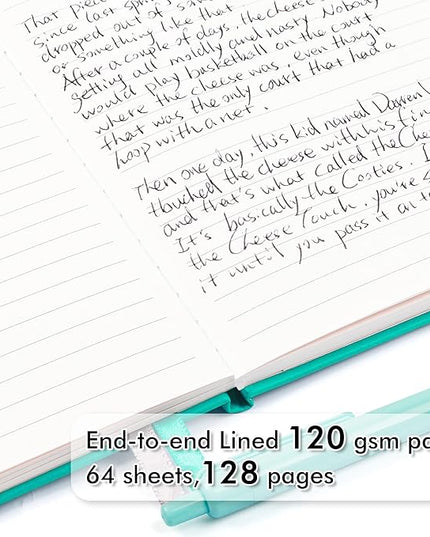 That piece
Since last spring
dropped out of som
or something like that
After a couple of days, the cheese
getting all moldy and nasty. Nobody
would play basketball on the court
where the cheese was, even though
that was the only court that had a
hoop with a net.
Then one day, this kid named Darren
touched the cheese with his fin
and that's what called the Che
It's basically the Cooties. I
the Cheese Touch, you're s
it until you pass it on to
End-to-end Lined 120 gsm pa
64 sheets,128 pages